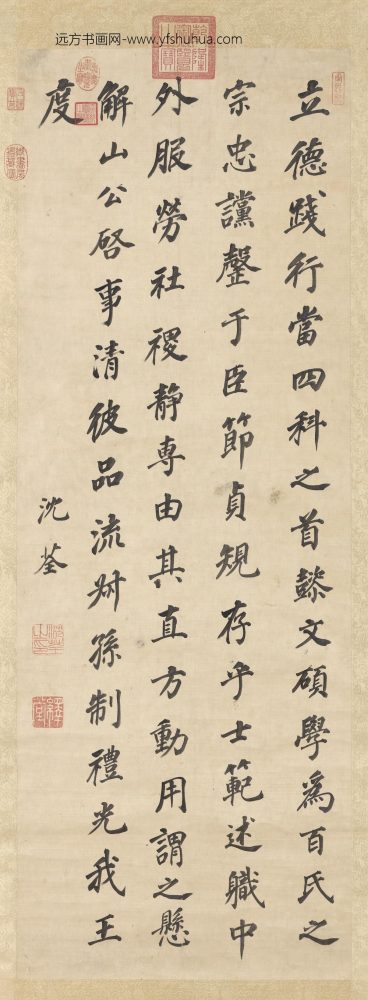 远方书画网-www.yfshuhua.com
立德踐行當四科之首懿文碩學爲百氏之
宗忠讜罄于臣節貞規存乎士範述職中
外服勞社稷静專由其直方動用謂之懸
解山公啓事清彼品流叔孫制禮光我王
度
沈荃
乾隆御覽之寶
沈荃之印